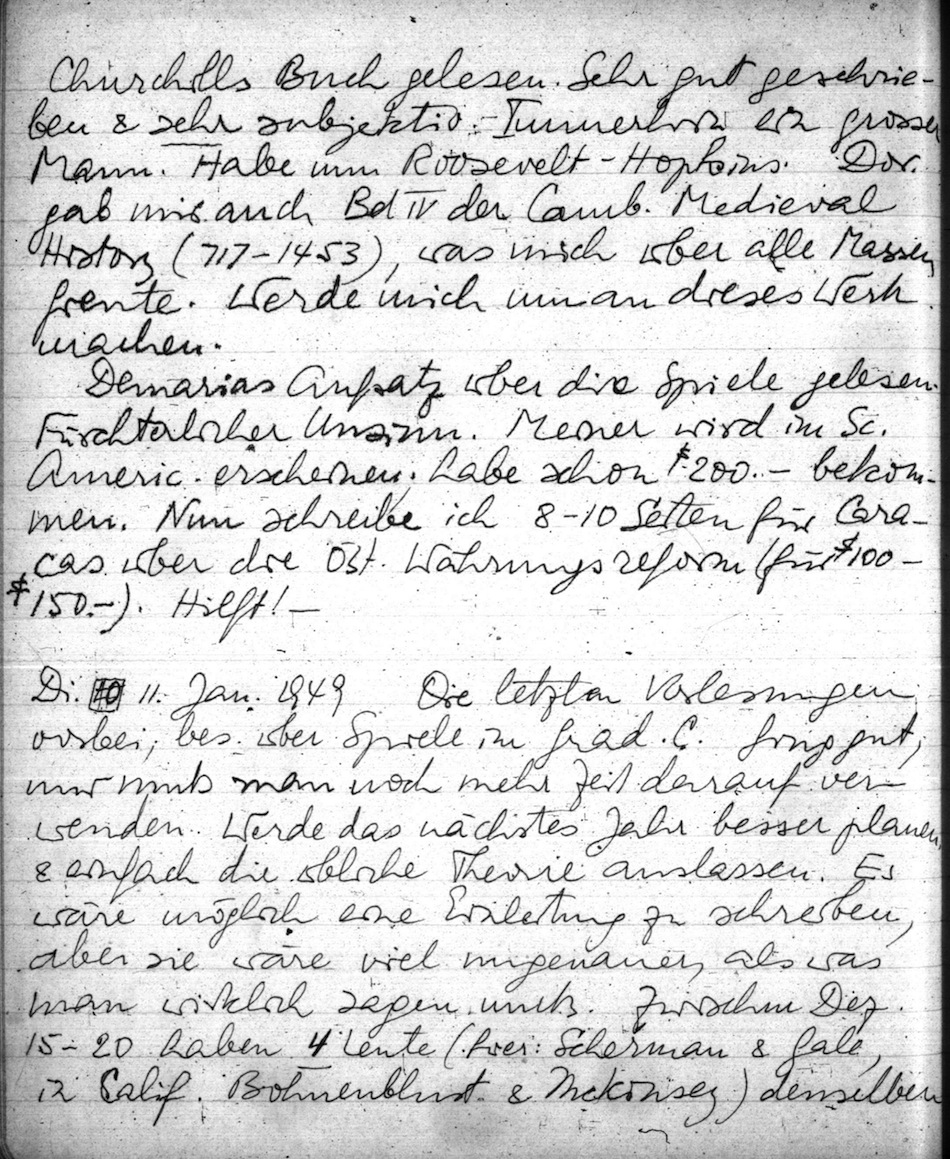 Churchills Buch gelesen. Sehr gut geschrie-
ben & sehr subjektiv. – Immerhin ein grosser
Mann. Habe nun Roosevelt – Hopkins. Dor.
gab mir auch Bd IV der Camb. Medieval
History (717–1453), was mich über alle Massen
freute. Werde mich nun an dieses Werk
machen.
Demarias Aufsatz über die Spiele gelesen.
Fürchterlicher Unsinn. Meiner wird im Sc.
Americ. erscheinen; habe schon $200.– bekom-
men. Nun schreibe ich 8–10 Seiten für Cara-
cas über die Öst. Währungsreform (für $100–
$150.–). Hilft! –
Di. 11. Jan. 1949 Die letzten Vorlesungen
vorbei, bes. über Spiele im Grad. C. Ging gut;
nur muss man noch mehr Zeit darauf ver-
wenden. Werde das nächstes Jahr besser planen
& einfach die übliche Theorie auslassen. Es
wäre möglich eine Einleitung zu schreiben,
aber sie wäre viel ungenauer, als was
man wirklich sagen muss. Zwischen Dez.
15–20 haben 4 Leute (hier: Scherman & Gale,
in Calif. Bohnenblust & McKinsey) denselben